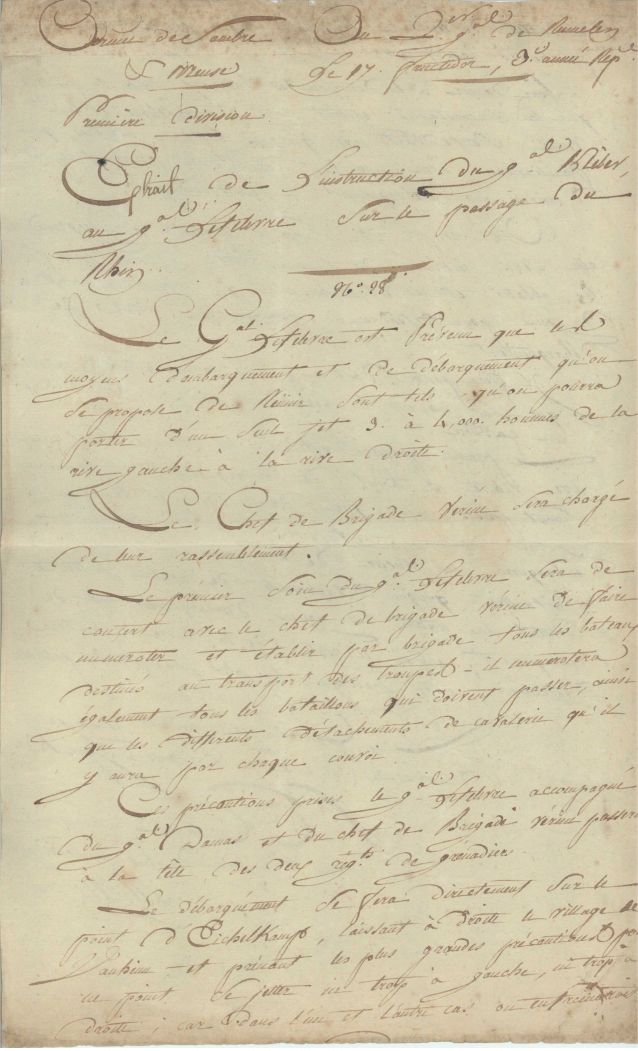 Armée de Sambre Au Qer Gal de Rumelen
& Meuse Le 17. fructidor, 3e année Repe
Première Division
Extrait de L'instruction du gal Kléber,
au gal Lefebvre Sur le passage du
Rhin.
No. 28
Le Gal Lefebvre est Prévenu que les
moyens d'embarquement et de débarquement qu'on
Se propose de Réunir Sont tels qu'on pourra
porter d'un Seul Jet 3. à 4,000. hommes de la
rive gauche à la rive droite.
Le Chef de Brigade Vérine Sera chargé
de leur rassemblement.
Le prémier Soin du gal Lefebvre Sera de
concert avec le chef de brigade Vérine de faire
numeroter et établir par brigade tous les bateaux
destinés au transport des troupes - il numerotera
également tous les bataillons qui doivent passer, ainsi
que les differents détachements de cavalerie qu'il
y aura par chaque convoi.
Ces précautions prises le gal Lefebvre accompagné
du gal Damas et du chef de Brigade Vérine passera
à la tête des deux regts de grénadiers
Le débarquement Se fera directement Sur le
point d'Eichelkamp, laissant à droite le village de
et prénant les plus grandes précautions po
ne point Se jetter ni trop à gauche, ni trop à
droite ; car dans l'un et l'autre cas on